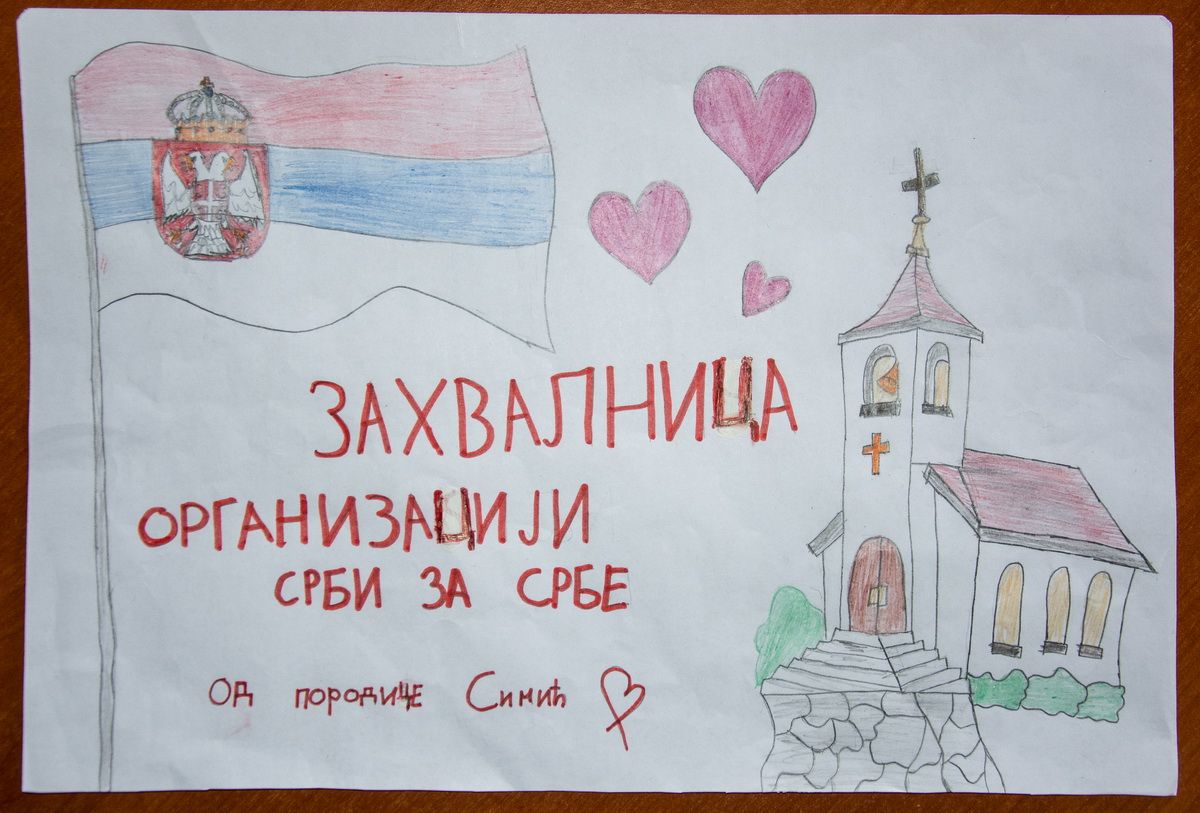 ЗАХВАЛНИЦА
ОРГАНИЗАЦИЈИ
СРБИ ЗА СРБЕ
Од породице Симић